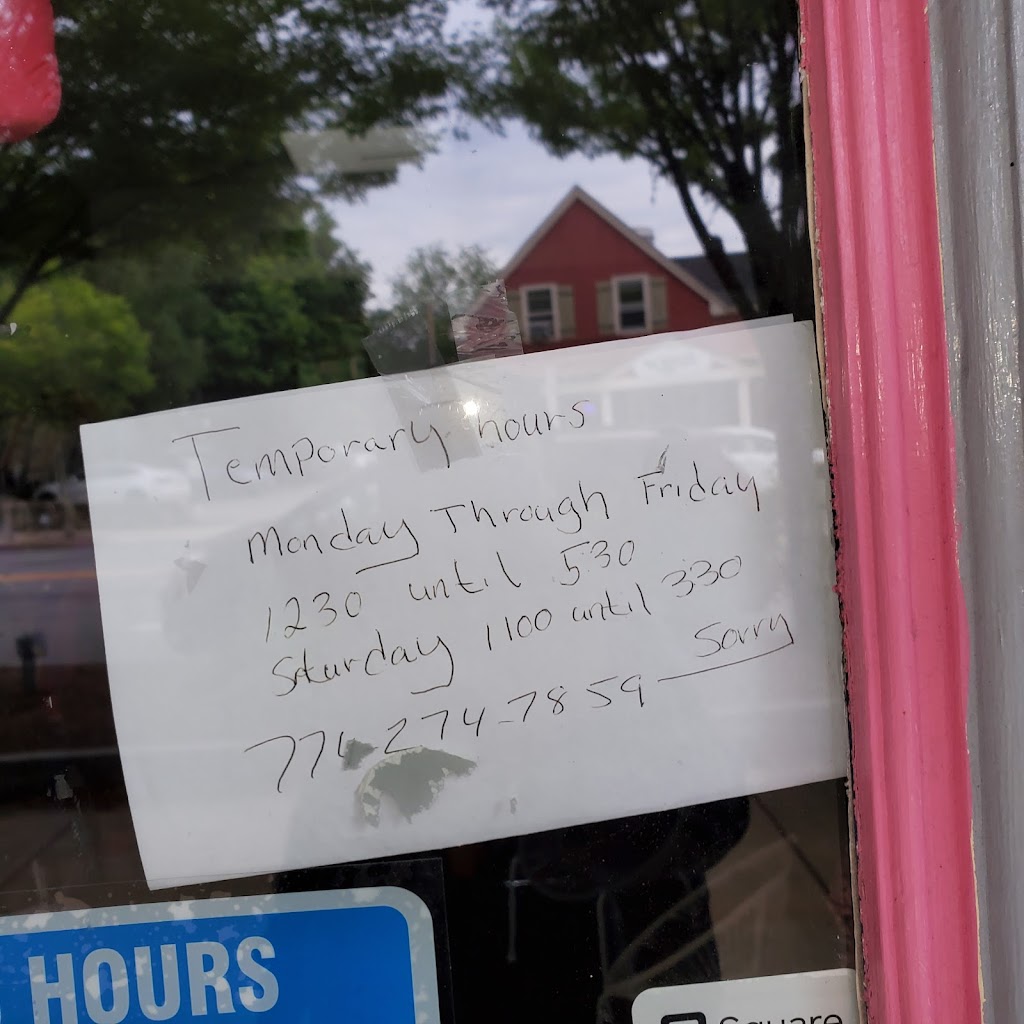 Temporary hours
Monday Through Friday
1230 until 530
Saturday 1100 until 330
Sorry
274-7859
HOURS
Square